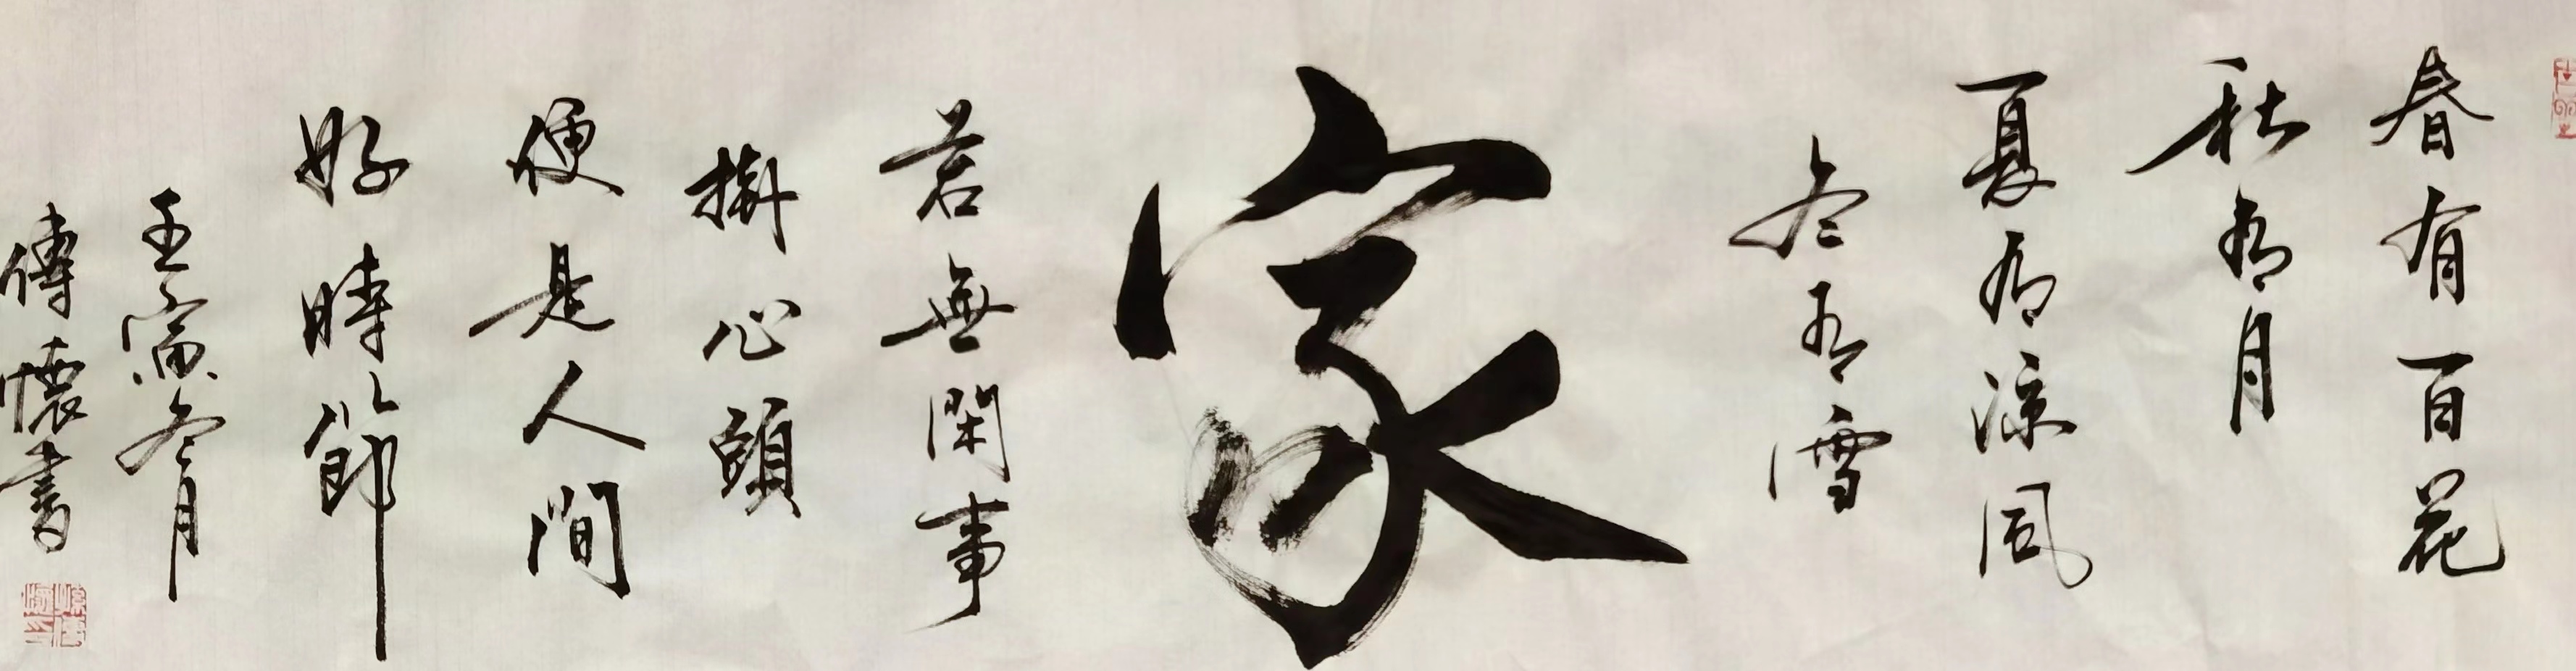 春有百花
秋有月
夏有涼風
冬有雪
家
若無閑事
掛心頭
便是人間
好時節
壬寅冬月
傳懷書